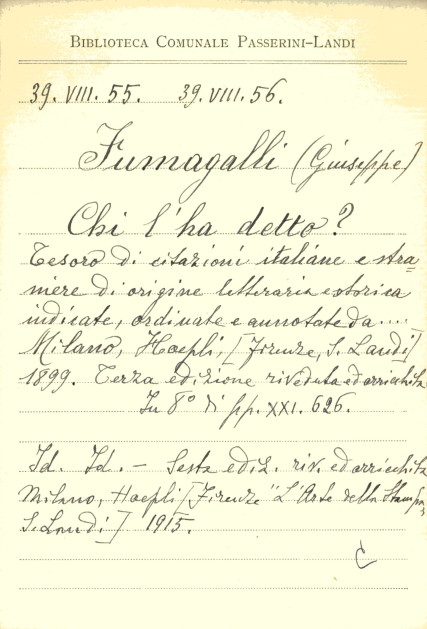 BIBLIOTECA COMUNALE PASSERINI-LANDI
39. VIII. 55. 39. VIII. 56.
Fumagalli (Giuseppe)
Chi l'ha detto?
Tesoro di citazioni italiane e stra=
niere di origine letteraria e storica
indicate, ordinate e annotate da....
Milano, Hoepli, [Firenze, S. Landi]
1899. Terza edizione riveduta ed arricchita
In 8° di pp. XXI. 626.
Id. Id. - Sesta ediz. riv. ed arricchita
Milano, Hoepli [Firenze "L'Arte della Stampa,
S. Landi] 1915.